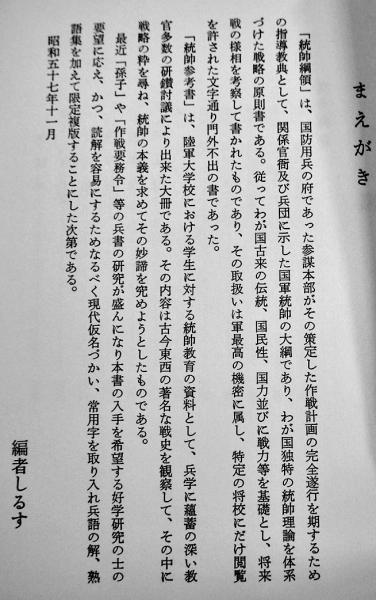 まえがき
「統帥綱領」は、国防用兵の府であった参謀本部がその策定した作戦計画の完全遂行を期するため
の指導教典として、関係官衙及び兵団に示した国軍統帥の大綱であり、わが国独特の統帥理論を体系
づけた戦略の原則書である。従ってわが国古来の伝統、国民性、国力並びに戦力等を基礎とし、将来
戦の様相を考察して書かれたものであり、その取扱いは軍最高の機密に属し、特定の将校にだけ閲覧
を許された文字通り門外不出の書であった。
「統帥参考書」は、陸軍大学校における学生に対する統帥教育の資料として、兵学に蘊蓄の深い教
官多数の研鑽討議により出来た大冊である。その内容は古今東西の著名な戦史を観察して、その中に
戦略の粋を尋ね、統帥の本義を求めてその妙諦を究めようとしたものである。
最近「孫子」や「作戦要務令」等の兵書の研究が盛んになり本書の入手を希望する好学研究の士の
要望に応え、かつ、読解を容易にするためなるべく現代仮名づかい、常用字を取り入れ兵語の解、熟
語集を加えて限定複版することにした次第である。
昭和五十七年十一月
編者しるす